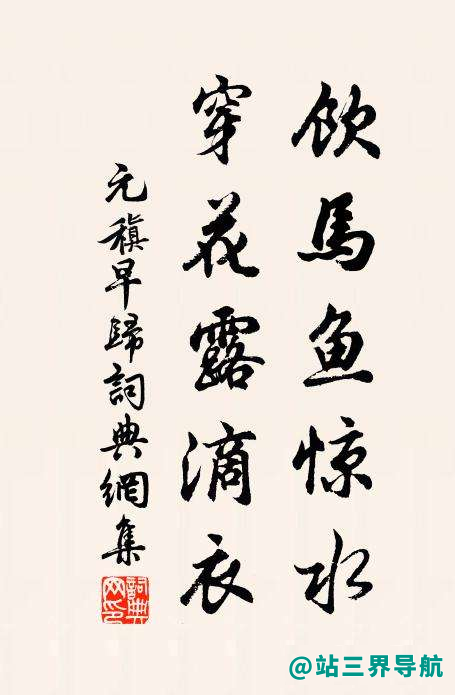 饮馬鱼惊水
穿花露滴衣
元稹早歸詞典網集
詞典网印
@站三界导航